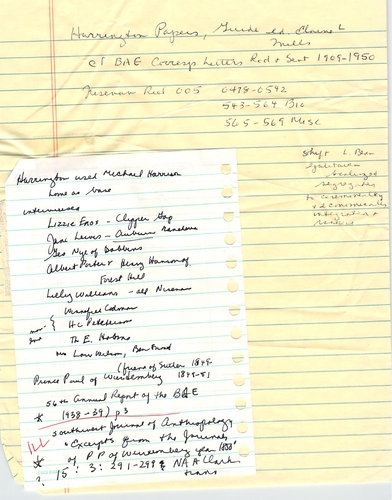 Harrington Papers, Guide ed. Elaine L
Mills
cf BAE Corresp Letters Rcd + Sent 1909-1950
Nisenan Reel 005 0498-0542
543-564 Bio
565-569 Misc
Harrington used Michael Harrison
home as base
interviewees
Lizzie Enos - Clipper Gap
Jane Lewis - Auburn Rancheria
Geo Nye of Dobbins
Albert Porter & Henry Hanson of
Forest Hill
Lilly Williams - old Nisenan
Winnifred Codman
H C Petersen
Th. E.
Mrs Lou Wilson, Ben
Prince Paul of Wurtemberg 1849-51
(friend of Sutter 1849
56th Annual Report of the BAE
* 1938-39) p 3
ILL Southwest Journal of Anthropology
"Excerpts from the Journals
* of P P of Wurtemberg year 1850"
? 15: 3: 291-299 & NAA Clark
trans